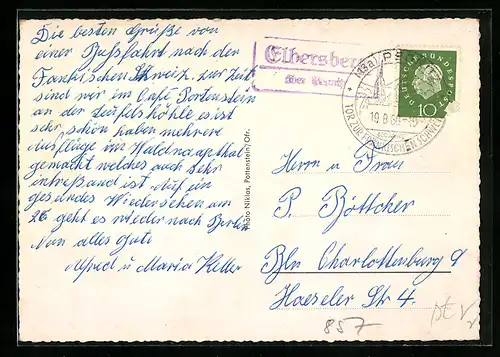 Die besten Grüße von
einer Busfahrt nach der
Fränkischen Schweiz. zur Zeit
sind wir im Café Bortenstein
an der Teufelshöhle es ist
sehr schön haben mehrere
Ausflüge im Waldnaapthal
gemacht welches auch sehr
intreßand ist. Auf ein
gesundes Wiedersehen am
26 geht es wieder nach Berlin
Nun alles Gute
Alfred u Maria Keller
Photo Niklas, Pottenstein/Ofr.
Elbersberg
über Pegnitz
(13a) PEGNITZ
19.8.60
TOR ZUR FRÄNKISCHEN SCHWEIZ
DEUTSCHE BUNDESPOST
10
Herrn u Frau
P. Böttcher
Bln Charlottenburg 9
Haeseler Str 4.
857